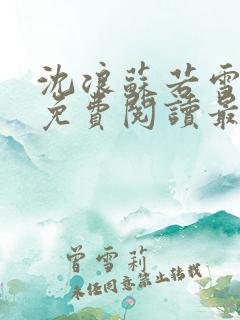 沈浪蘇若雪
免費閱讀最
曾雪莉
未经同意禁止转载